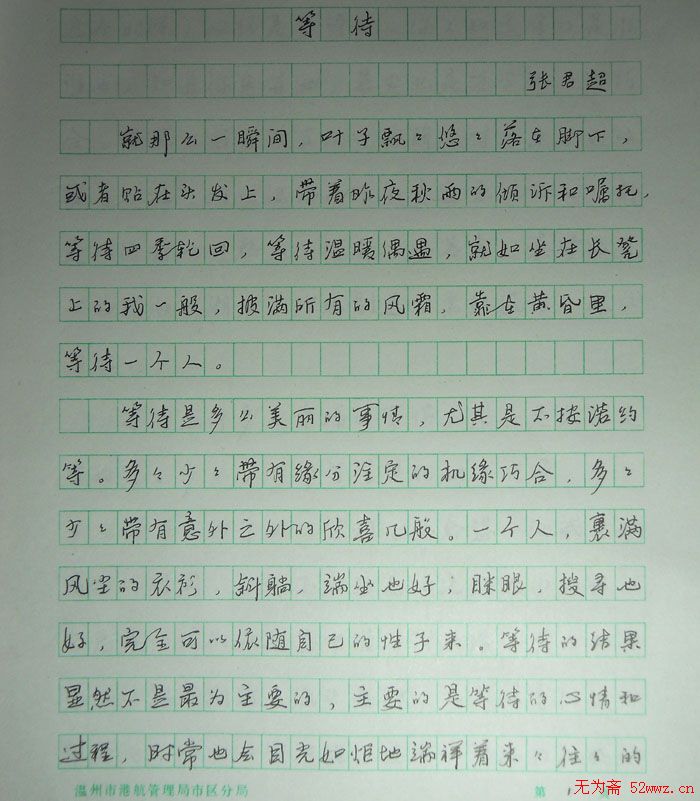 等待
张君超
就那么一瞬间，叶子飘々悠々落在脚下，
或者贴在头发上，带着昨夜秋雨的倾诉和嘱托，
等待四季轮回，等待温暖偶遇，就如坐在长凳
上的我一般，披满所有的风霜，靠在黄昏里，
等待一个人。
等待是多么美丽的事情，尤其是不按洁约
等。多々少々带有缘分注定的机缘巧合，多々
少々带有意外之外的欣喜几般。一个人，裹满
风尘的衣衫，斜躺，端坐也好；眯眼，搜寻也
好，完全可以依随自己的性子来。等待的结果
显然不是最为主要的，主要的是等待的心情和
过程，时常也会目光如炬地端祥着来々往々的
温州市港航管理局市区分局 第 1
无为斋 52wwz.cn